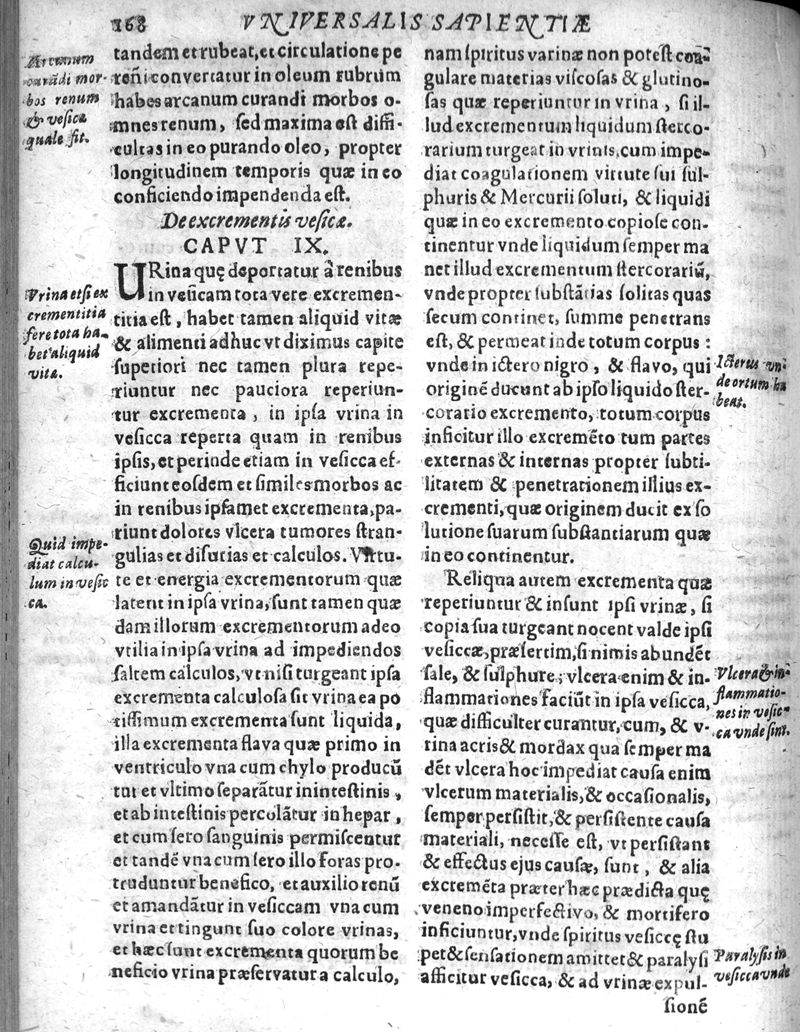 168 VNIVERSALIS SAPIENTIÆ
Arcanum
curādi mor-
bos renum
& vesicæ
quale fit.
tandem et rubeat, et circulatione pe
reñi convertatur in oleum rubrum
habes arcanum curandi morbos o-
mnes renum, sed maxima est diffi-
cultas in eo purando oleo, propter
longitudinem temporis quæ in eo
conficiendo impendenda est.
De excrementis vesicæ.
CAPVT IX.
Vrina etsi ex
crementitia
fere tota ha-
bet aliquid
vitæ.
URina quę deportatur à renibus
in vesicam tota vere excremen-
titia est, habet tamen aliquid vitæ
& alimenti adhuc vt diximus capite
superiori nec tamen plura repe-
riuntur nec pauciora reperiun-
tur excrementa, in ipsa vrina in
vesicca reperta quam in renibus
ipsis, et perinde etiam in vesicca ef-
ficiunt eosdem et similes morbos ac
in renibus ipsamet excrementa, pa-
riunt dolores vlcera tumores stran-
gulias et disurias et calculos. Virtu-
Quid impe-
diat calcu-
lum in vesic
ca.
te et energia excrementorum quæ
latent in ipsa vrina, sunt tamen quæ
dam illorum excrementorum adeo
vtilia in ipsa vrina ad impediendos
saltem calculos, vt nisi turgeant ipsa
excrementa calculosa sit vrina ea po
tissimum excrementa sunt liquida,
illa excrementa flava quæ primo in
ventriculo vna cum chylo producū
tut et vltimo separātur in intestinis,
et ab intestinis percolātur in hepar,
et cum sero sanguinis permiscentur
et tandē vna cum sero illo foras pro-
truduntur benefico, et auxilio renū
et amandātur in vesiccam vna cum
vrina et tingunt suo colore vrinas,
et hæc sunt excrementa quorum be
neficio vrina præservatur a calculo,
nam spiritus varinæ non potest coā-
gulare materias viscosas & glutino-
sas quæ reperiuntur in vrina, si il-
lud excrementum liquidum sterco-
rarium turgeat in vrinis, cum impe-
diat coagulationem virtute sui sul-
phuris & Mercurii soluti, & liquidi
quæ in eo excremento copiose con-
tinentur vnde liquidum semper ma
net illud excrementum stercorariū,
vnde propter substātias solitas quas
secum continet, summe penetrans
est, & permeat inde totum corpus:
vnde in ictero nigro, & flavo, qui
Icterus vn-
de ortum ha
beat.
originē ducunt ab ipso liquido ster-
coratio excremento, totum corpus
inficitur illo excremēto tum partes
externas & internas propter subti-
litatem & penetrationem illius ex-
crementi, quæ originem ducit ex so
lutione suarum substantiarum quæ
in eo continentur.
Reliqna autem excrementa quæ
reperiuntur & insunt ipsi vrinæ, si
copia sua turgeant nocent valde ipsi
vesiccæ, præsertim, si nimis abundēt
sale, & sulphure, vlcera enim & in-
flammationes faciūt in ipsa vesicca,
quæ difficulter curantur, cum, & v-
rina acris & mordax qua semper ma
Vlcera & in-
flammatio-
nes in vesic-
ca vnde sint.
dēt vlcera hoc impediat causa enim
vlcerum materialis, & occasionalis,
semper persistit, & persistente causa
materiali, necesse est, vt persistant
& effectus ejus causæ, sunt, & alia
excremēta præter hæc prædicta quę
veneno imperfectivo, & mortifero
inficiuntur, vnde spiritus vesiccę stu
pet & sensationem amittet & paralysi
afficitur vesicca, & ad vrinæ expul-
Paralysis in
vesicca vnde
sionē